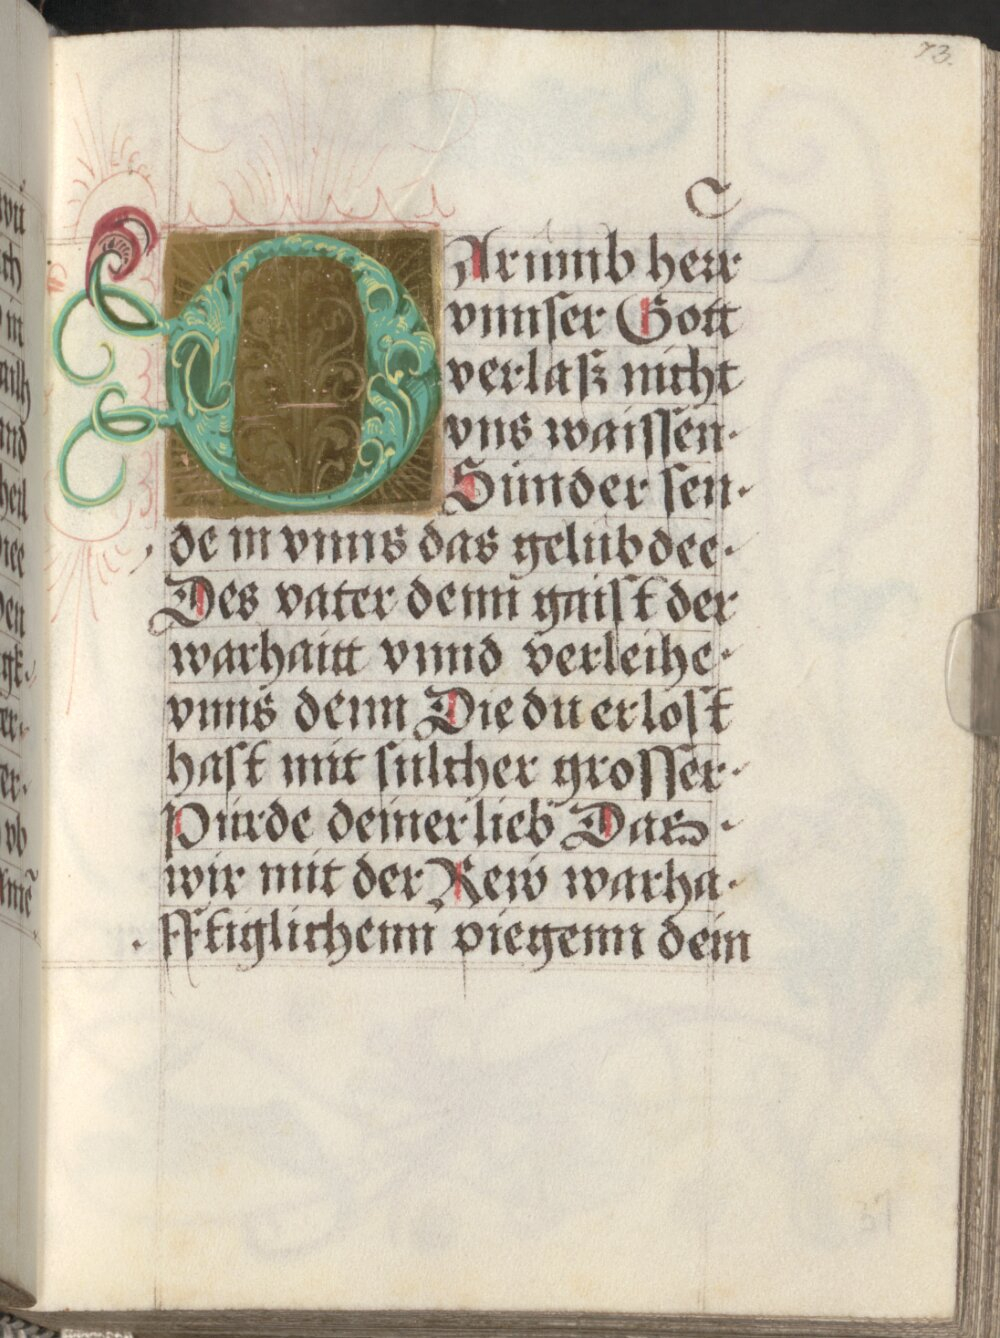 73.
DArumb herr
vnnser Gott
verlasz nicht
vns waissen.
Sünder sen.
de in vnns das gelübdee.
Des vater denn gaist der
warhaitt vnnd verleihe.
vnns denn Die du erlost
hast mit sülcher grosser.
Pürde deiner lieb Das.
wir mit der Rew warha.
fftiglichenn piegenn dein